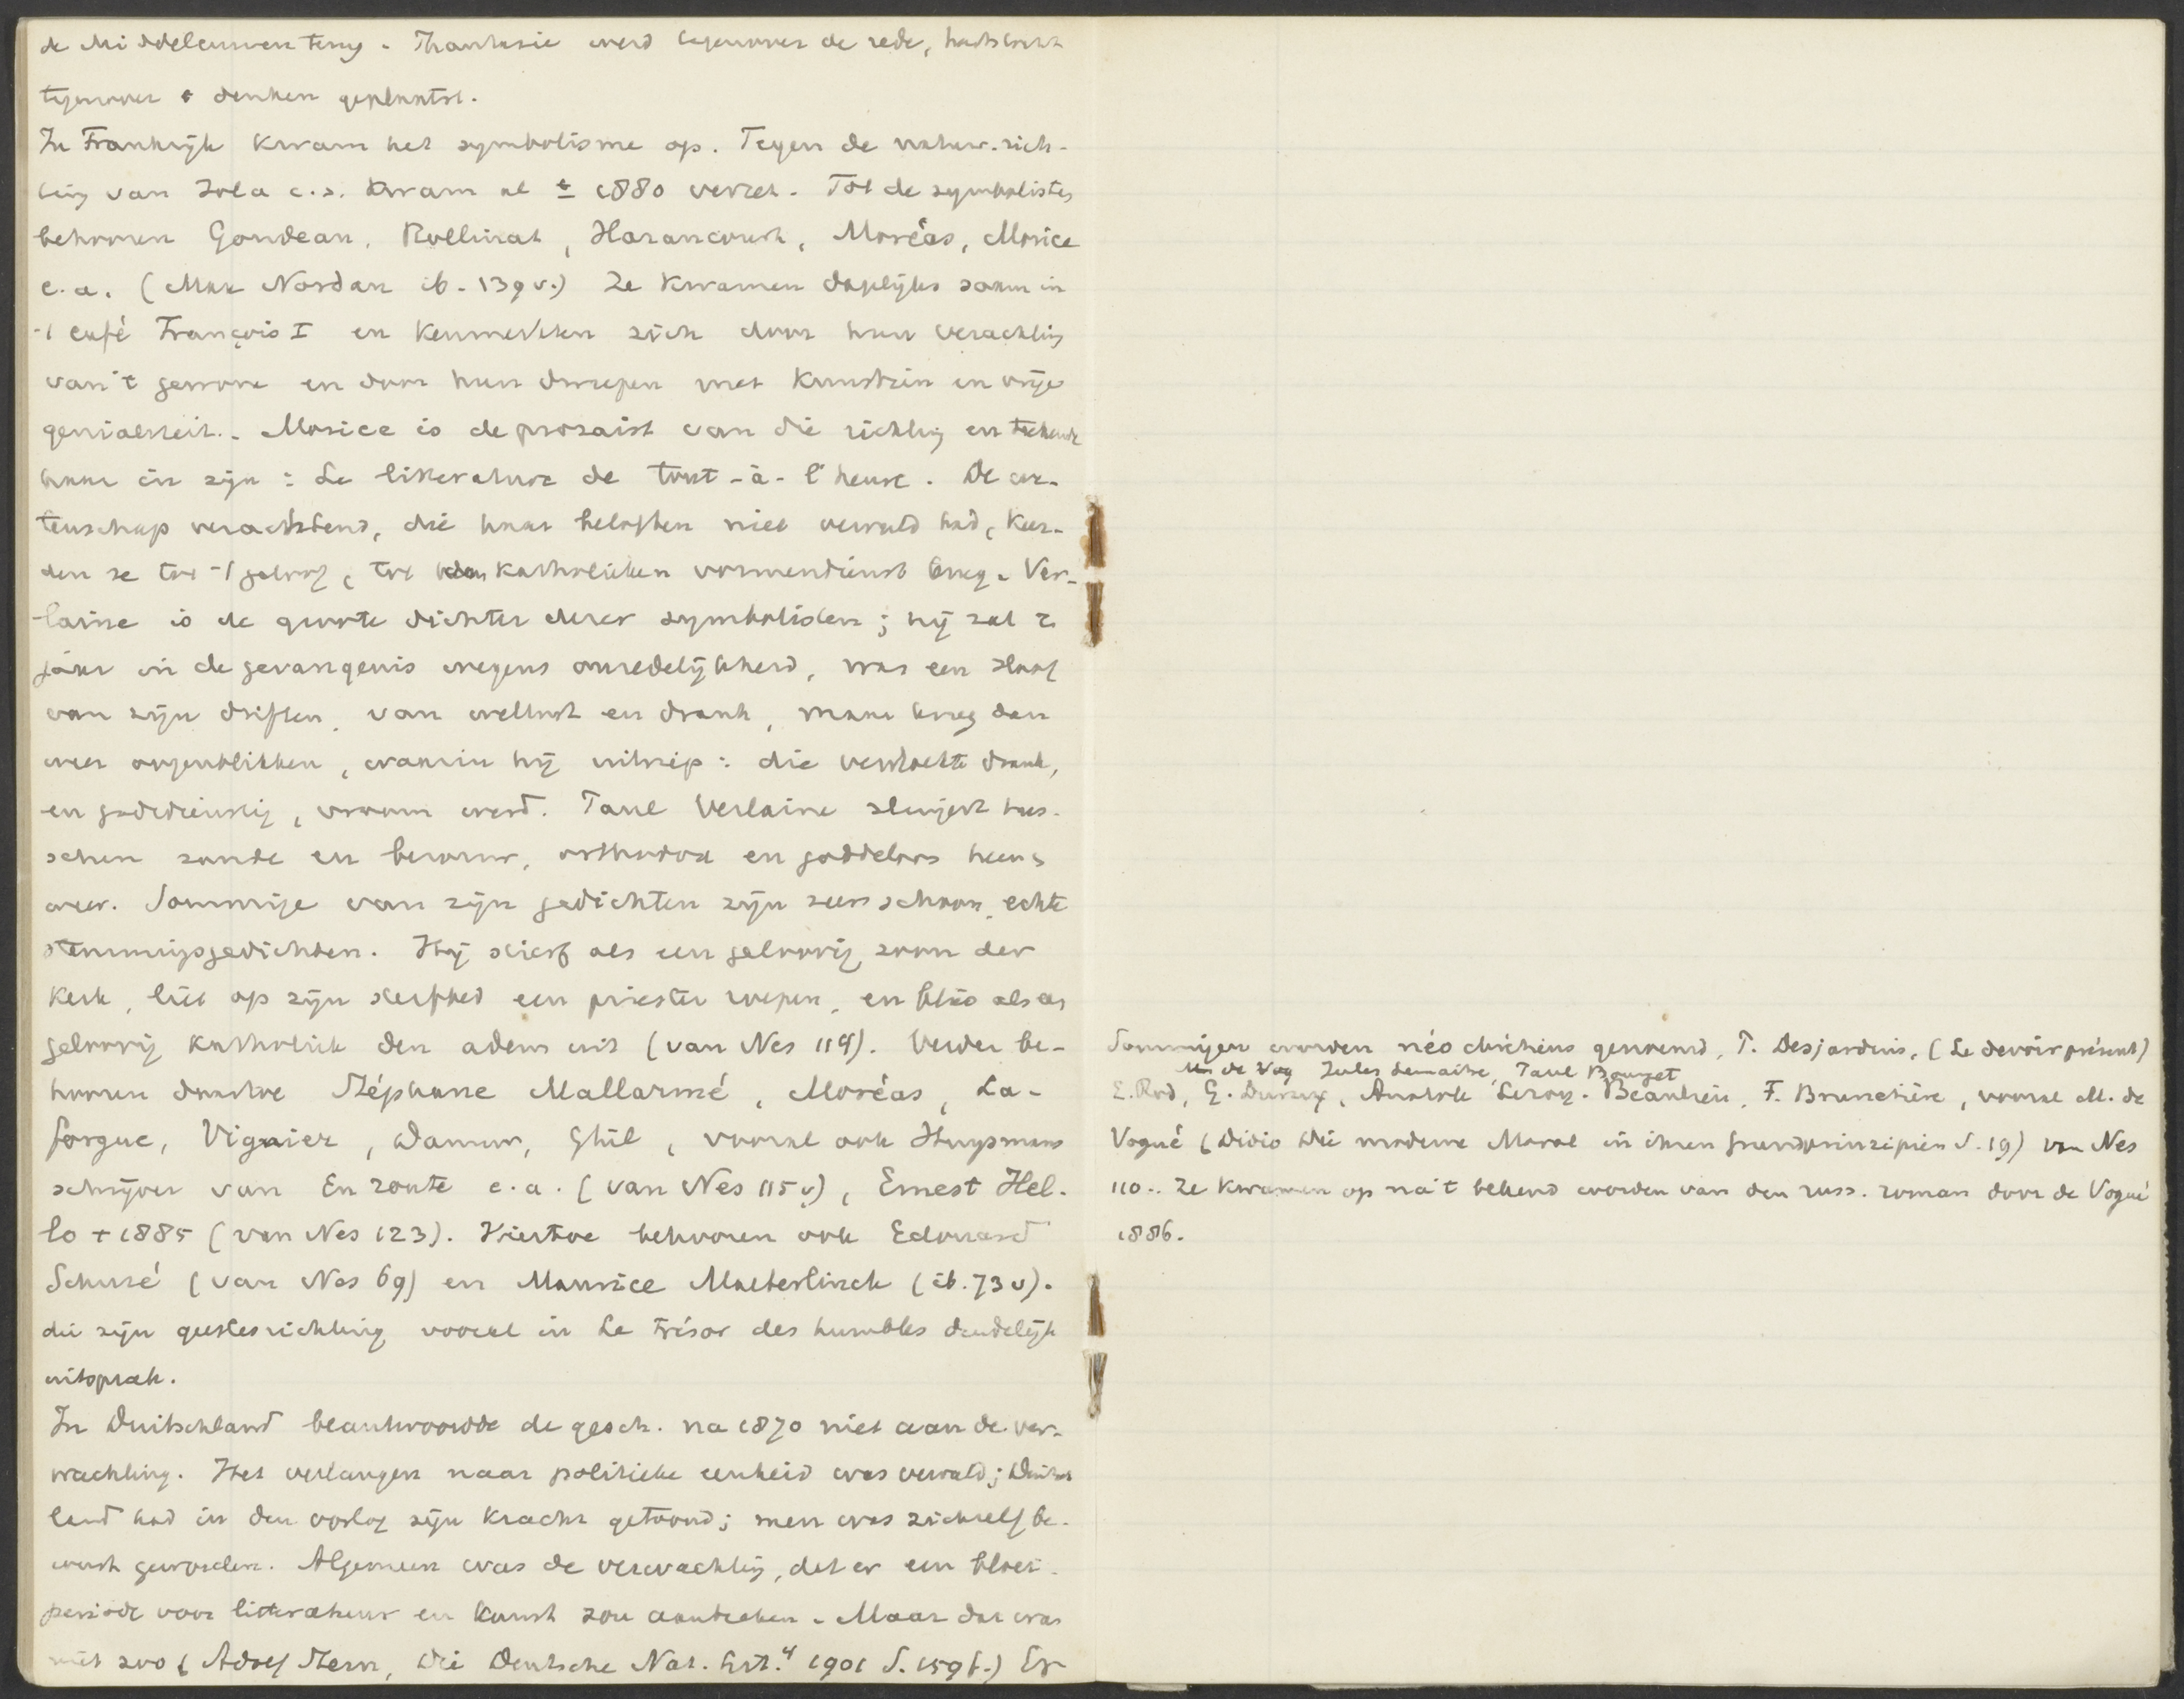 de Middeleeuwen terug. Phantasie werd tegenover de rede, hartstocht
tegenover 't denken geplaatst.
In Frankrijk kwam het symbolisme op. Tegen de natur. rich-
ting van Zola c.s. kwam al ± 1880 verzet. Tot de symbolisten
behooren Goudeau, Rollinat, Haraucourt, Moréas, Morice
e.a. (Max Nordau ib. 139 v.) Ze kwamen dagelijks samen in
't café François I en kenmerkten zich door hun verachting
van 't gewone en door hun dwepen met kunstzin en vrije
genialiteit. Morice is de prozaist van die richting en teekende
haar in zijn: La litterature de tout-à-l'heure. De we-
tenschap verachtend, die haar beloften niet vervuld had, keer-
den ze tot 't geloof, tot den katholieken vormendienst terug. Ver-
laine is de groote dichter dezer symbolisten; hij zat 2
jaar in de gevangenis wegens onzedelijkheid, was een slaaf
van zijn driften, van wellust en drank, maar kreeg dan
weer oogenblikken, waarin hij uitriep: die vervloekte drank,
en godsdienstig, vroom werd. Paul Verlaine slingert tus-
schen zonde en berouw, orthodox en goddeloos heen &
weer. Sommige van zijn gedichten zijn zeer schoon, echte
stemmingsgedichten. Hij stierf als een geloovig zoon der
Kerk, liet op zijn sterfbed een priester roepen, en blies als een
geloovig katholiek den adem uit (van Nes 119). Verder be-
hooren daartoe Stéphane Mallarmé, Moréas, La-
forgue, Vignier, Damur, Ghil, vooral ook Huysmans
schrijver van En route e.a. (van Nes 115 v), Ernest Hel-
lo + 1885 (van Nes 123). Hiertoe behooren ook Edouard
Schuré (van Nes 69) en Maurice Maeterlinck (ib. 73 v).
die zijn geestesrichting vooral in Le trésor des humbles duidelijk
uitsprak.
In Duitschland beantwoordde de gesch. na 1870 niet aan de ver-
wachting. Het verlangen naar politieke eenheid was vervuld; Duitsch
land had in den oorlog zijn kracht getoond; men was zichzelf be-
wust geworden. Algemeen was de verwachting, dat er een bloei-
periode voor litteratuur en kunst zou aanbreken. Maar dat was
niet zoo (Adolf Stern, Die Deutsche Nat. Litt.⁴ 1901 S. 159 f.) Er
Sommigen worden néo chrétiens genoemd, P. Desjardins, (Le devoir présent)
de Vog Jules Lemaitre, Paul Bourget
E. Rod, G. Duruy, Anatole Leroy-Beaulieu, F. Brunetière, vooral M. de
Vogué (Didio Die moderne Moral in ihren Grundprinzipien S. 19) van Nes
110.. Ze kwamen op na 't bekend worden van den russ. roman door de Vogué
1886.